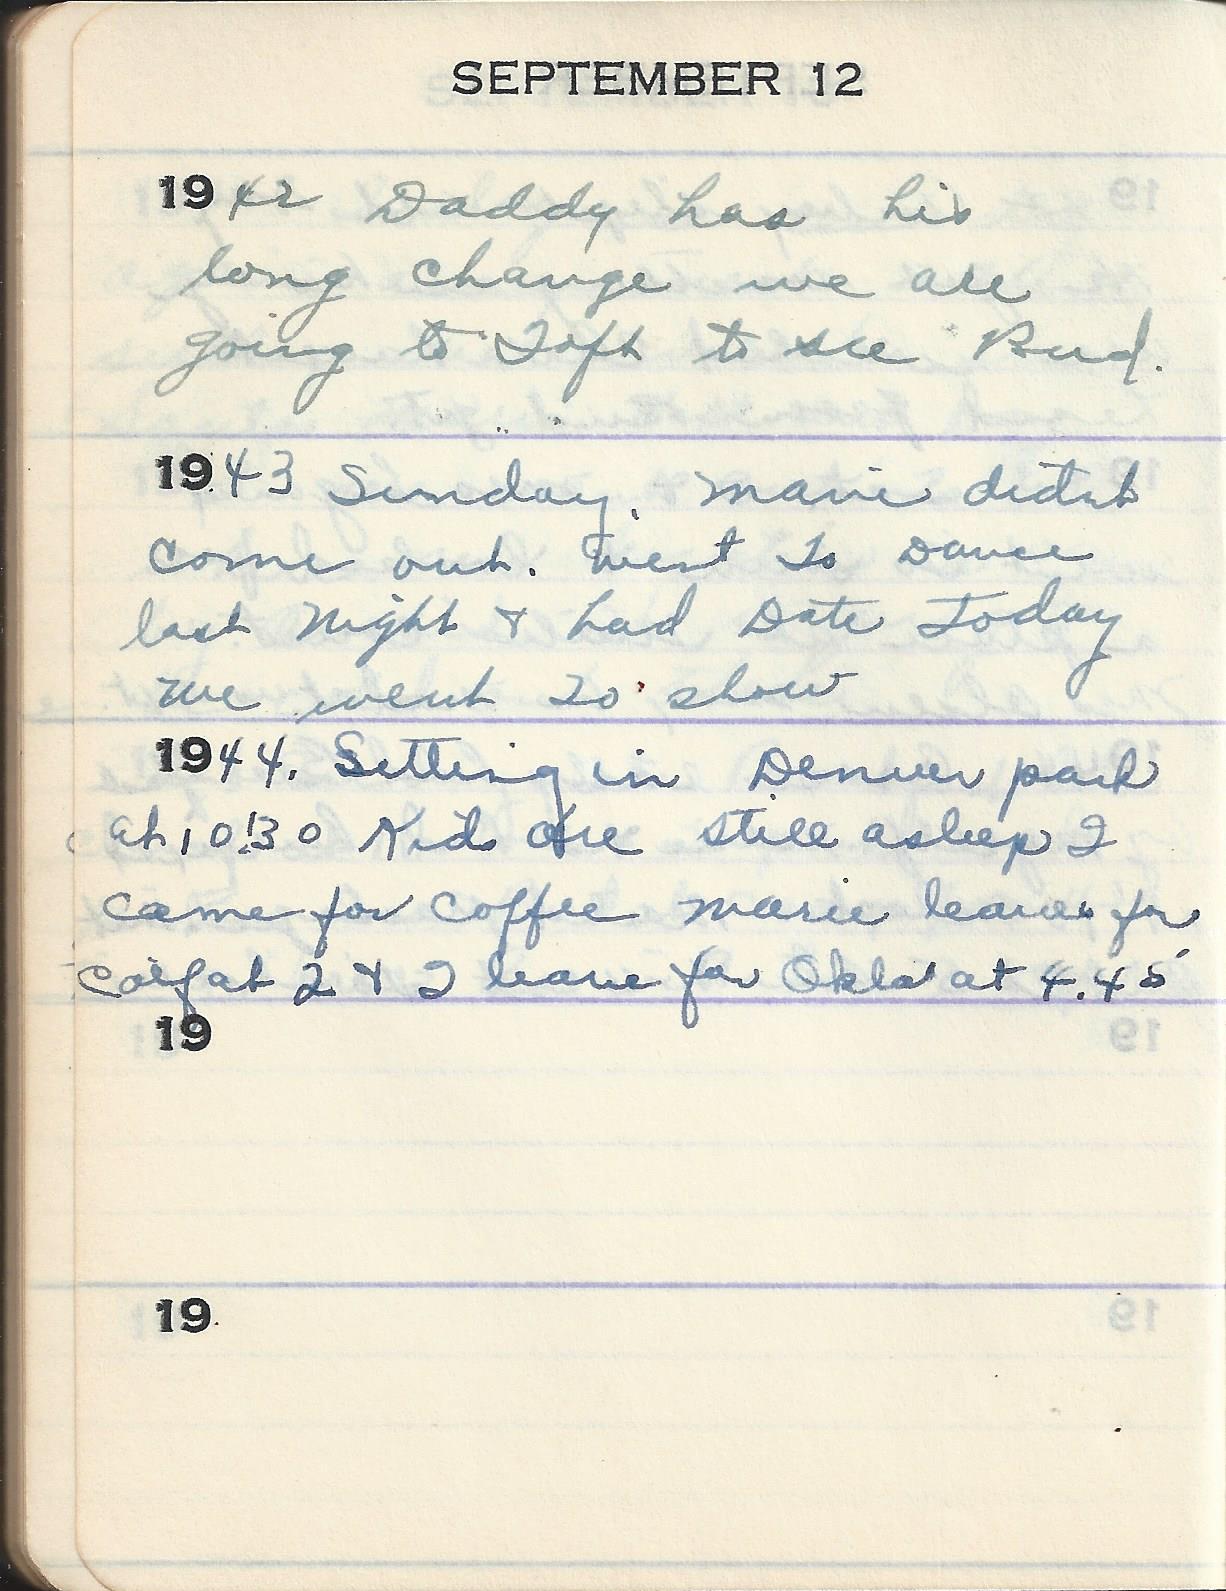 SEPTEMBER 12
1942 Daddy has his
long change we are
going to Toft to see Bud.
1943 Sunday. Marie didnt
come out. Went To Dance
last Night & had Date Today
we went To show
1944. Setting in Denver park
at 10:30 Kids are still asleep I
came for coffee marie leaves for
Calif at 2 & I leave for Okla at 4.45
19
19